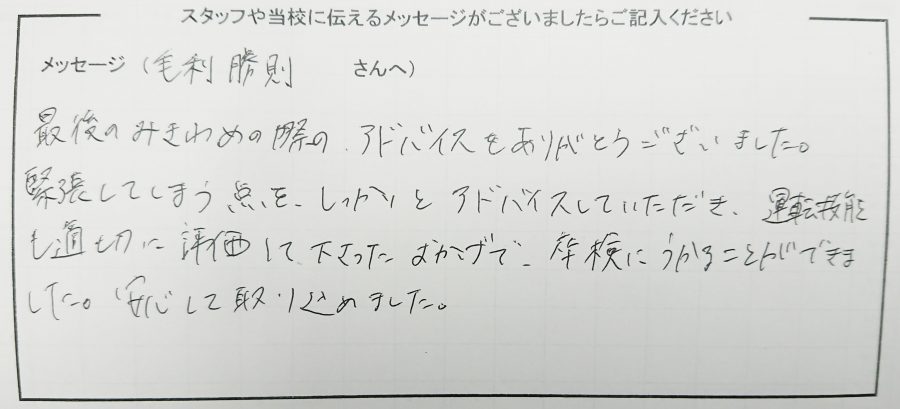 スタッフや当校に伝えるメッセージがございましたらご記入ください
メッセージ（毛利 勝則 さんへ）
最後のみきわめの際の、アドバイスをありがとうございました。
緊張してしまう点を、しっかりとアドバイスしていただき、運転技能
も適切に評価して下さったおかげで、卒検にうかることができま
した。安心して取り込めました。